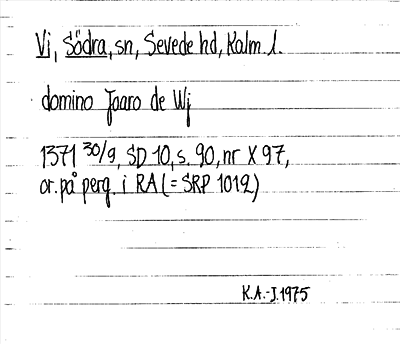 Vi, Södra, sn, Sevede hd, Kalm. l.
domino Joaro de Wj
1371 30/9, SD 10, s. 90, nr X 97,
or. på perg. i RA (= SRP 1012)
K.A.-J. 1975